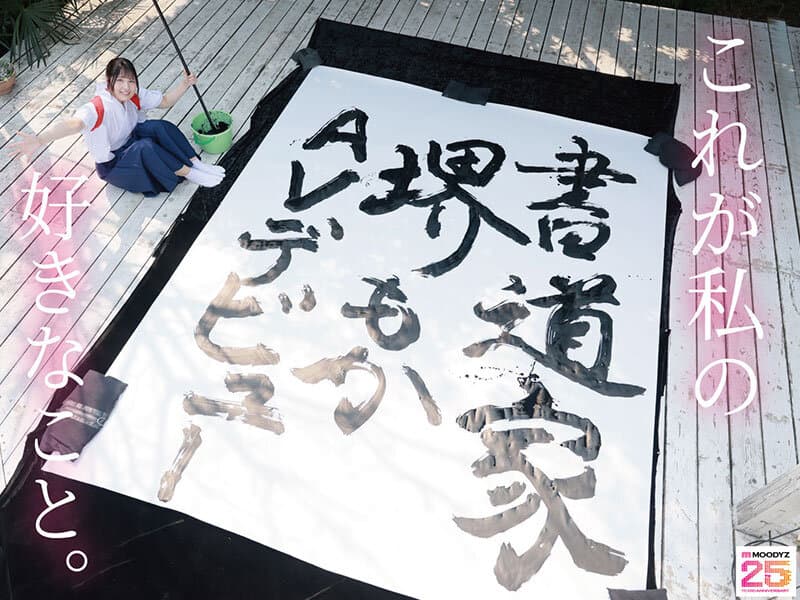 これが私の
書道家
堺もか
AVデビュー
好きなこと。
MOODYZ
25
YEARS ANNIVERSARY